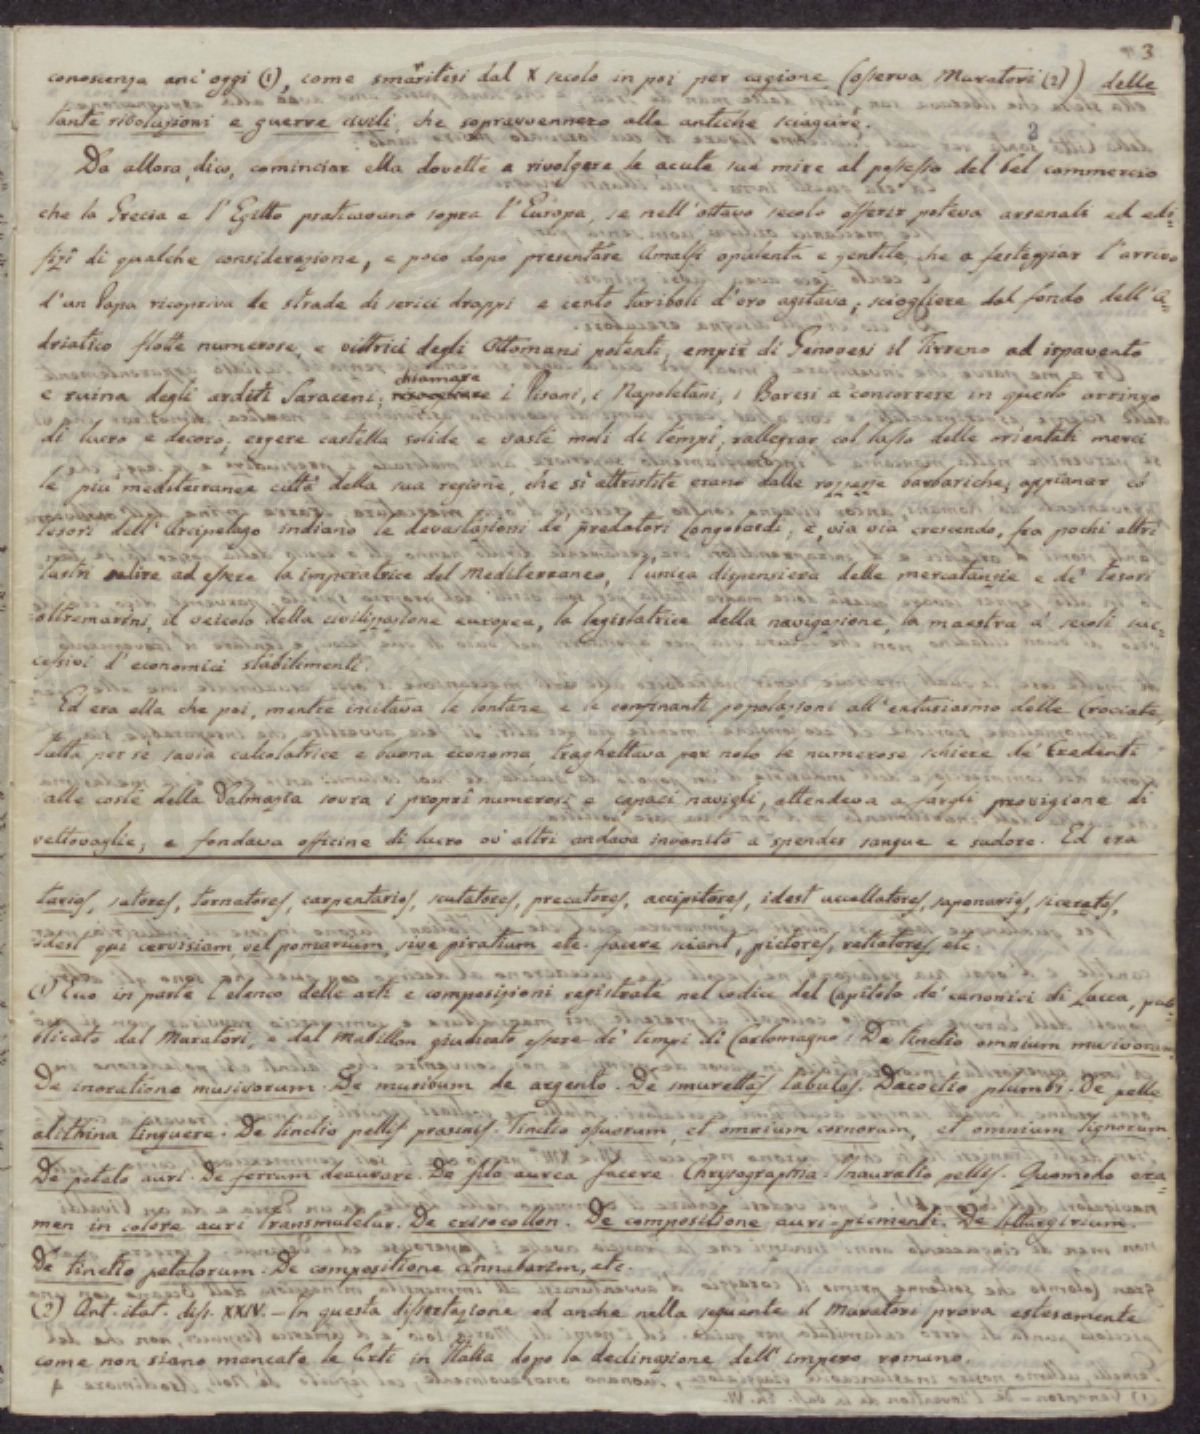 3
conoscenza anc' oggi (1), come smarritisi dal X secolo in poi per cagione (osserva Muratori (2)) delle
tante rivoluzioni e guerre civili, che sopravvennero alle antiche sciagure.
Da allora, dico, cominciar ella dovette a rivolgere le acute sue mire al possesso del bel commercio
che la Grecia e l'Egitto praticavano sopra l'Europa, se nell'ottavo secolo offerir poteva arsenali ed edi-
fizî di qualche considerazione, e poco dopo presentare Amalfi opulenta e gentile che a festeggiar l'arrivo
d'un Papa ricopriva le strade di serici drappi e cento turiboli d'oro agitava; sciogliere dal fondo dell'A-
driatico flotte numerose, e vittrici degli Ottomani potenti; empir di Genovesi il Tirreno ad ispavento
e ruina degli arditi Saraceni; chiamare i Pisani, i Napoletani, i Baresi a concorrere in questo arringo
di lucro e decoro; ergere castella solide e vaste moli di tempî; rallegrar col lusso delle orientali merci
le più mediterranee città della sua regione, che sì attristite erano dalle rozzezze barbariche; appianar co'
tesori dell'Arcipelago indiano le devastazioni de' predatori Longobardi; e, via via crescendo, fra pochi altri
lustri salire ad essere la imperatrice del Mediterraneo, l'unica dispensiera delle mercatanzie e de' tesori
oltremarini, il veicolo della civilizzazione europea, la legislatrice della navigazione, la maestra a' secoli suc-
cessivi d'economici stabilimenti.
Ed era ella che poi, mentre incitava le lontane e le confinanti popolazioni all'entusiasmo delle Crociate,
tutta per sè savia calcolatrice e buona economa, traghettava per nolo le numerose schiere de' Credenti
alle coste della Dalmazia sovra i proprî numerosi e capaci navigli, attendeva a fargli provigione di
vettovaglie, e fondava officine di lucro ov' altri andava invanito a spender sangue e sudore. Ed era
tarios, sutores, tornatores, carpentarios, scutatores, precatores, accipitores, idest aucellatores, saponarios, siceratos,
idest qui cervisiam, vel pomarium, sive piratium etc. facere sciant, pictores, retiatores etc.
(1) Ecco in parte l'elenco delle arti e composizioni registrate nel codice del Capitolo de' canonici di Lucca, pub-
blicato dal Muratori, e dal Mabillon giudicato essere de' tempi di Carlomagno: De tinctio omnium musivorum.
De inoratione musivorum. De musivum de argento. De smurettas tabulas. Decoctio plumbi. De pelle
alithina tinguere. De tinctio pellis prasinis. Tinctio ossuorum, et omnium cornorum, et omnium lignorum.
De petalo auri. De ferrum deaurare. De fila aurea facere. Chrysographia. Inauratio pellis. Quomodo era-
men in colore auri transmutetur. De crisocollon. De compositione auri-picmenti. De lithargirium.
De tinctio petalorum. De compositione cinnabarim, etc.
(2) Ant. itat. diss. XXIV. – In questa dissertazione ed anche nella seguente il Muratori prova estesamente
come non siano mancate le Arti in Italia dopo la declinazione dell'impero romano.